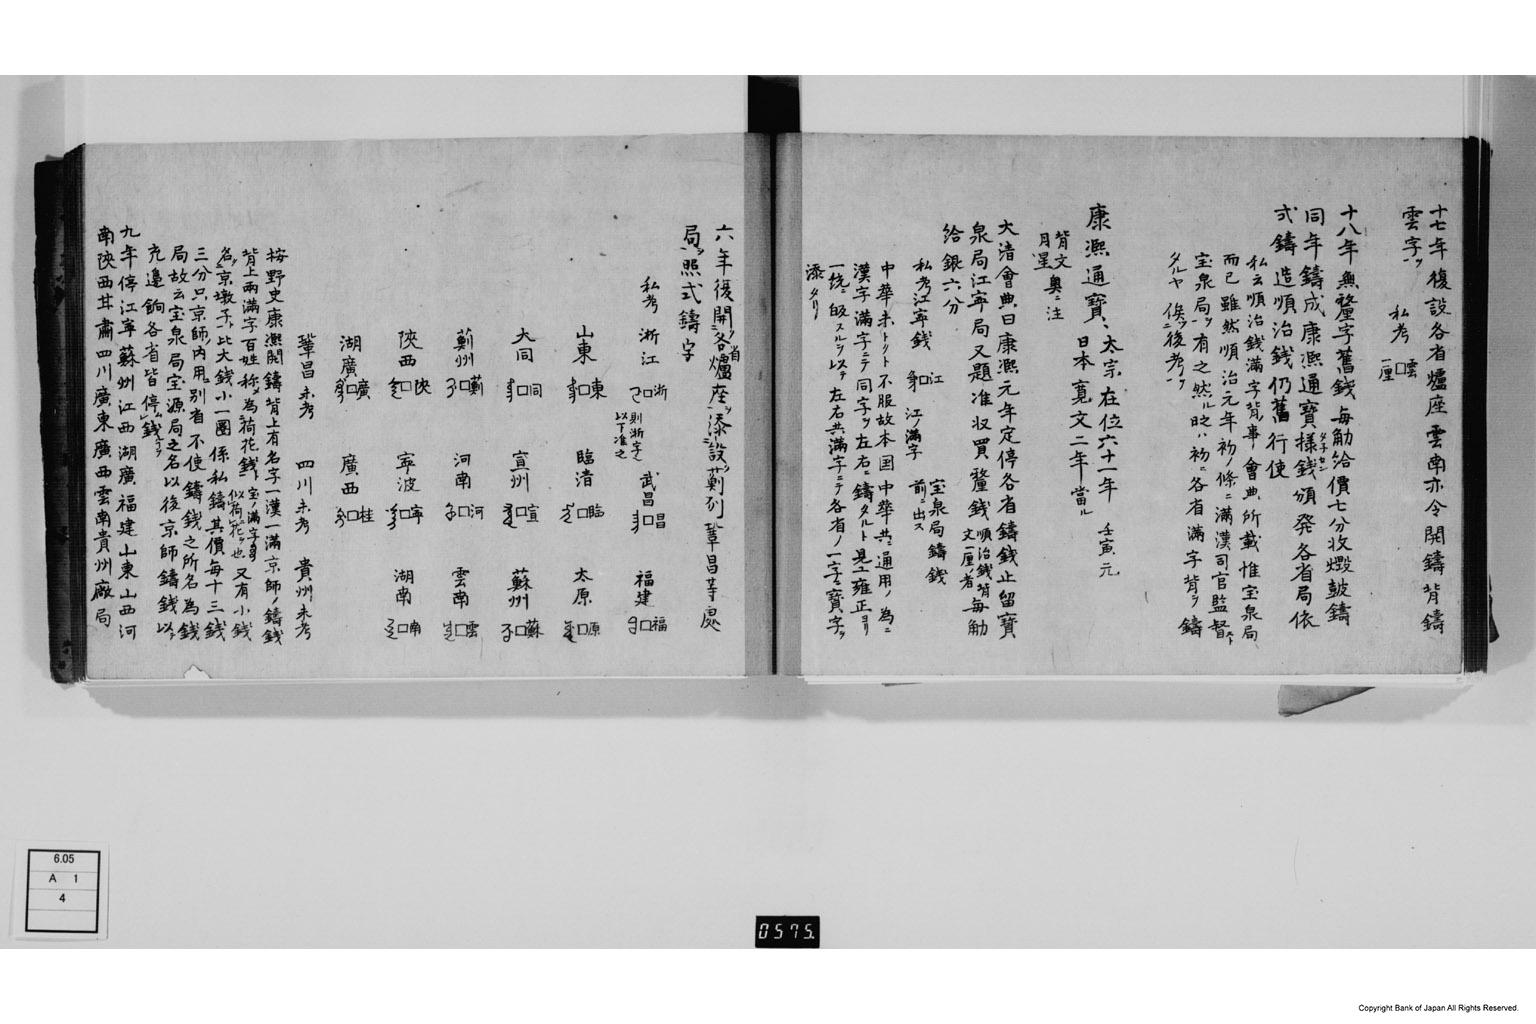 十七年復設各省爐座雲南亦令開鑄背鑄
雲字ヲ 私考 雲 一厘
十八年無釐字舊錢每觔給價七分收燬皷鑄
同年鑄成康熈通寳様錢頒発各省局依
式鑄造順治錢仍舊行使
私云順治錢滿字背ノ事會典所載惟宝泉局
而已雖然順治元年初ノ條ニ滿漢司官監督
宝泉局ヲ有之然ル时ハ初ニ各省滿字背ヲ鑄
タルヤ俟ツ後考ヲ
康熈通寳 太宗在位六十一年 壬寅元
日本寛文二年當ル
背文奥ニ注
月星
大清會典曰康熈元年定停各省鑄錢止留寳
泉局江寧局又題准収買釐錢 順治錢背文一厘ノ者 每觔
給銀六分
私考江寧錢 江 江ノ滿字前ニ出ス 宝泉局鑄錢
中華未ト不服故本国中華共ニ通用ノ為ニ
漢字滿字ニテ同字ヲ左右ニ鑄タルト見エ雍正ヨリ
一統ニ皈スルヲ以テ左右共滿字ニテ各省ノ一字ニ寳字ヲ
添タリ
六年後開ク各省爐座ヲ添設ヲ薊州鞏昌等處
局ヲ照式鑄字
私考 浙江 浙 則浙字也以下准之 武昌 昌 福建 福
山東 東 臨清 臨 太原 原
大同 同 宣州 宣 蘇州 蘇
薊州 薊 河南 河 雲南 雲
陝西 陝 寧波 寧 湖南 南
湖廣 廣 廣西 桂
鞏昌未考 四川未考 貴州未考
按野史康熈開鑄背上有名字一漢一滿京師ノ鑄錢
背上兩滿字百姓称メ為荷花錢 宝ノ滿字似荷花ヲ也 又有小錢
名ヲ京墩子ト比大錢小一圏係私鑄其價每十三錢
三分只京師ノ内用ル別省不使鑄錢之所名為錢
局故云宝泉局宝源局之名以後京師鑄錢以テ
充邉餉各省皆停ム錢ヲ
九年停江寧蘇州江西湖廣福建山東山西河
南陝西甘肅四川廣東廣西雲南貴州廠局
6.05
A 1
4
0575.
Copyright Bank of Japan All Rights Reserved.